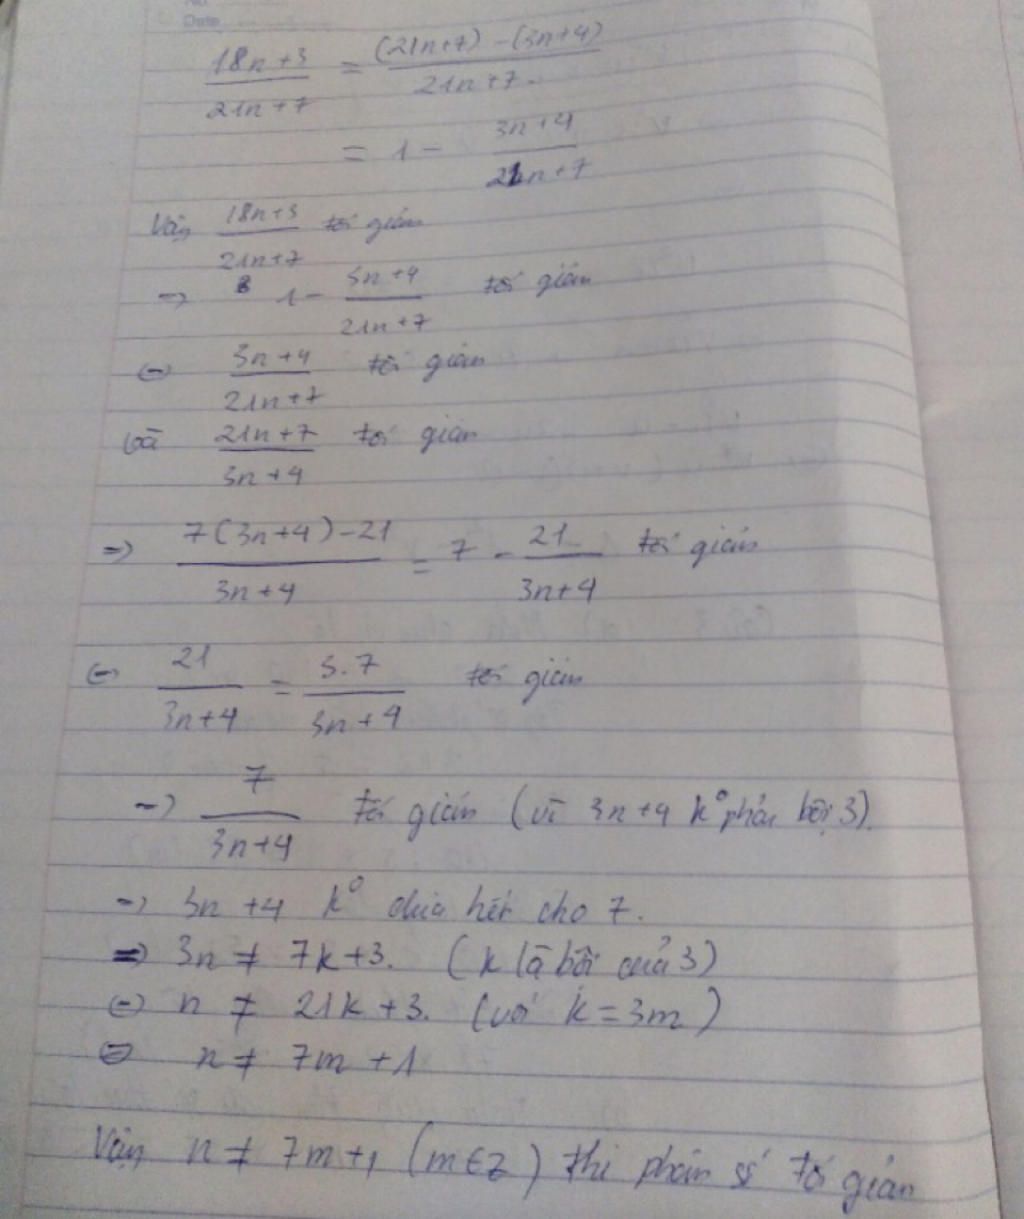 No.
Date
18n+3/21n+7 = (21n+7) - (3n+4)/21n+7.
= 1 - 3n+4/21n+7
Vậy 18n+3/21n+7 tối giản
=> 1 - 3n+4/21n+7 tối giản
<=> 3n+4/21n+7 tối giản
và 21n+7/3n+4 tối giản
=> 7(3n+4)-21/3n+4 = 7 - 21/3n+4 tối giản
<=> 21/3n+4 = 3.7/3n+4 tối giản
=> 7/3n+4 tối giản (vì 3n+4 k° phải bội 3).
=> 3n+4 k° chia hết cho 7.
=> 3n ≠ 7k+3. (k là bội của 3)
<=> n ≠ 21k+3. (với k=3m)
<=> n ≠ 7m+1
Vậy n ≠ 7m+1 (m∈Z) thì phân số tối giản